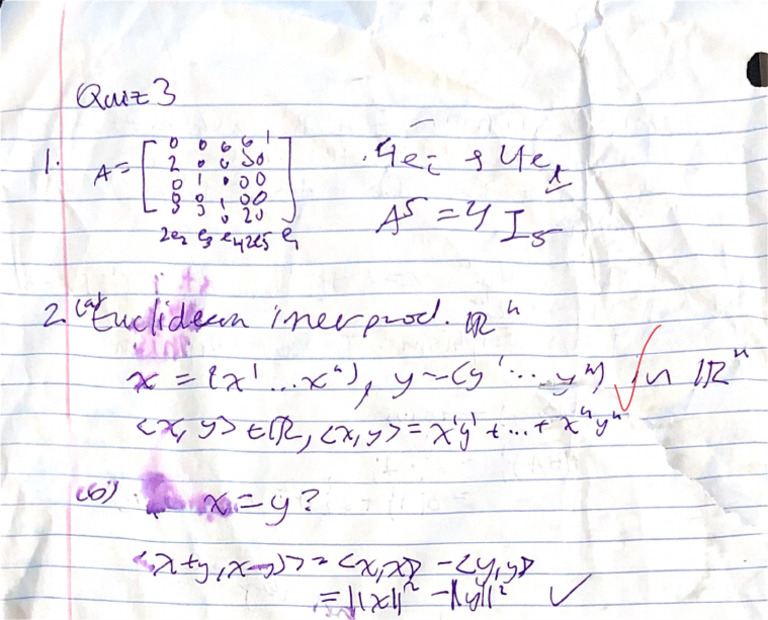 Quiz 3
1. A = [ 0 0 0 0 1
2 0 0 0 0
0 1 0 0 0
0 0 1 0 0
0 0 0 2 0 ]
2e₂ e₃ e₄ 2e₅ e₁
A⁵ = 4 I₅
2. (a) Euclidean inner prod. ℝⁿ
x = (x¹ ... xⁿ), y = (y¹ ... yⁿ) in ℝⁿ
<x, y> ∈ ℝ, <x, y> = x¹y¹ + ... + xⁿyⁿ
(b) x = y?
<x+y, x-y> = <x, x> - <y, y>
= ||x||² - ||y||² ✓